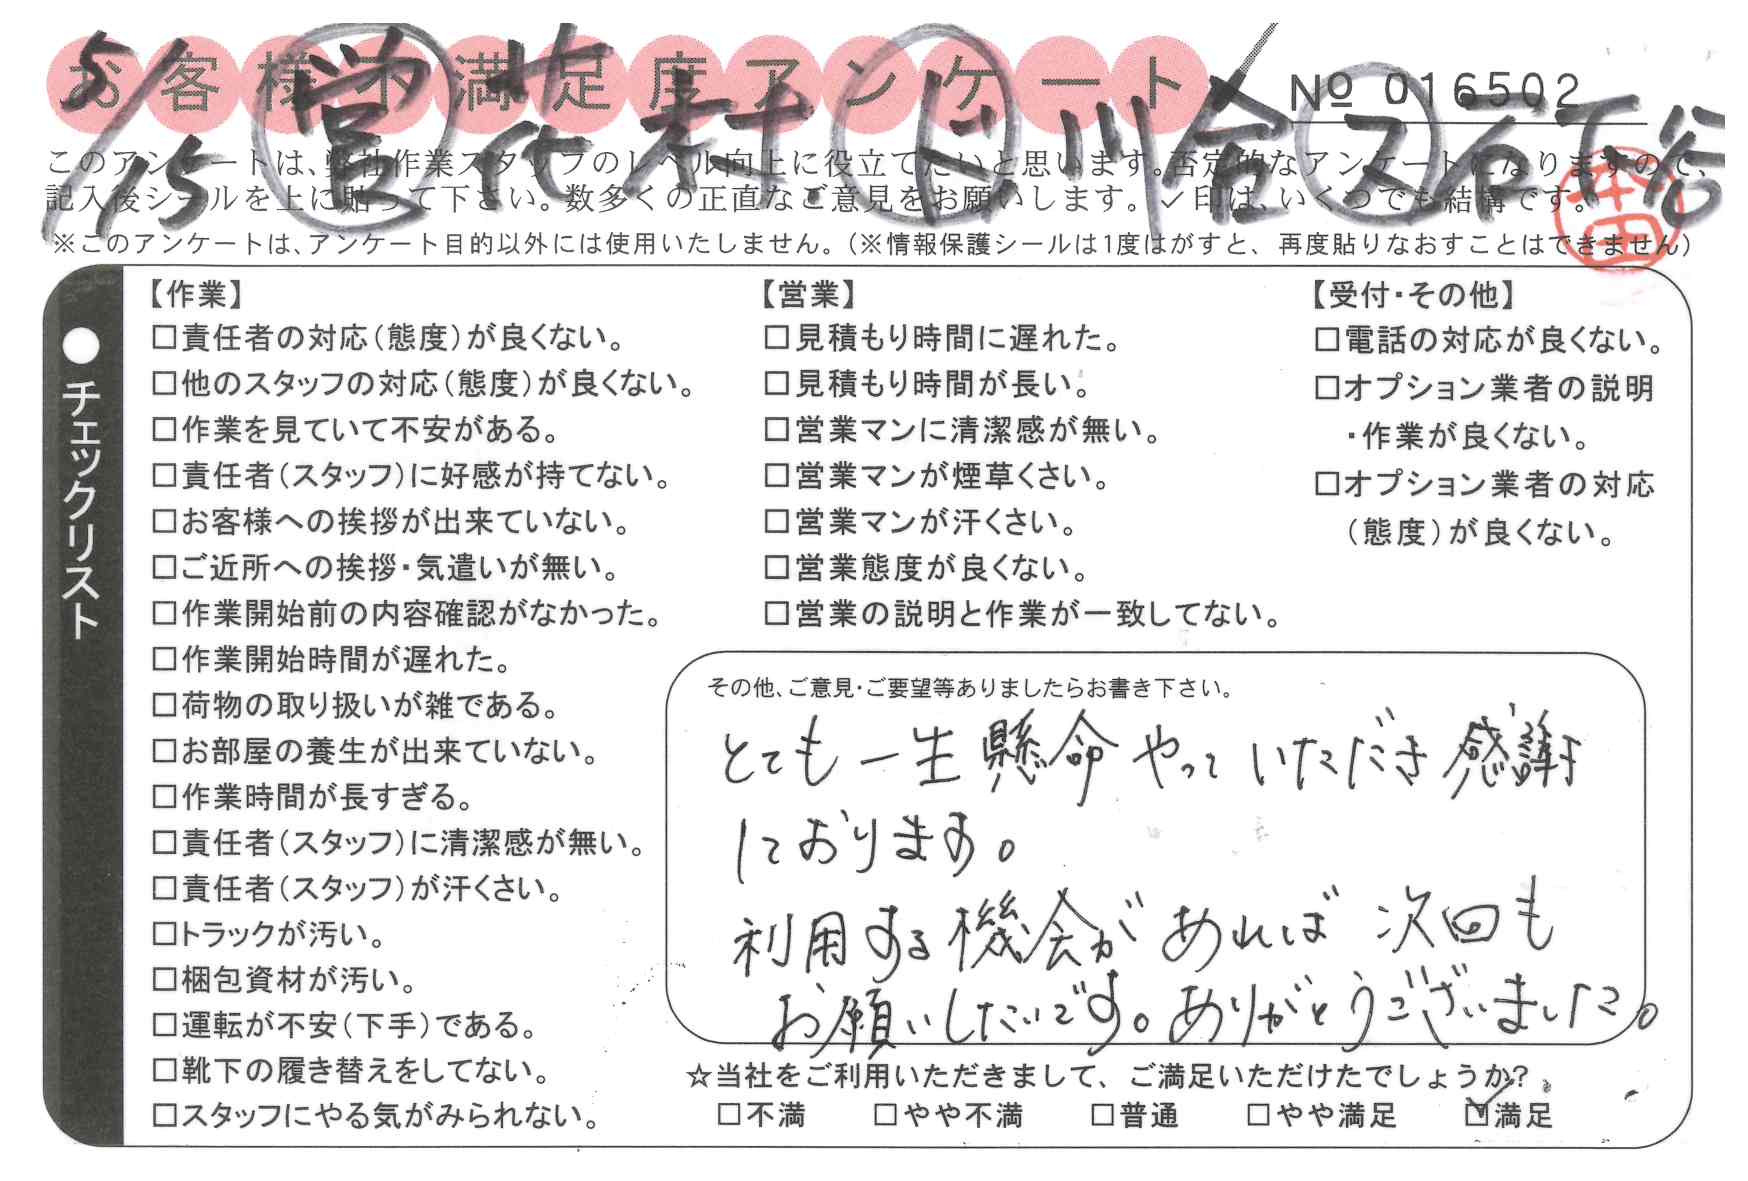 お客様不満足度アンケート
5/15
営
ド
川金
ス
No 016502
このアンケートは、弊社作業スタッフのレベル向上に役立てたいと思います。否定的なアンケートになりますので、
記入後シールを上に貼って下さい。数多くの正直なご意見をお願いします。✓印は、いくつでも結構です。
※このアンケートは、アンケート目的以外には使用いたしません。(※情報保護シールは1度はがすと、再度貼りなおすことはできません)
●チェックリスト
【作業】
□責任者の対応(態度)が良くない。
□他のスタッフの対応(態度)が良くない。
□作業を見ていて不安がある。
□責任者(スタッフ)に好感が持てない。
□お客様への挨拶が出来ていない。
□ご近所への挨拶・気遣いが無い。
□作業開始前の内容確認がなかった。
□作業開始時間が遅れた。
□荷物の取り扱いが雑である。
□お部屋の養生が出来ていない。
□作業時間が長すぎる。
□責任者(スタッフ)に清潔感が無い。
□責任者(スタッフ)が汗くさい。
□トラックが汚い。
□梱包資材が汚い。
□運転が不安(下手)である。
□靴下の履き替えをしてない。
□スタッフにやる気がみられない。
【営業】
□見積もり時間に遅れた。
□見積もり時間が長い。
□営業マンに清潔感が無い。
□営業マンが煙草くさい。
□営業マンが汗くさい。
□営業態度が良くない。
□営業の説明と作業が一致してない。
【受付・その他】
□電話の対応が良くない。
□オプション業者の説明
・作業が良くない。
□オプション業者の対応
(態度)が良くない。
その他、ご意見・ご要望等ありましたらお書き下さい。
とても一生懸命やっていただき感謝
しております。
利用する機会があれば次回も
お願いしたいです。ありがとうございました。
☆当社をご利用いただきまして、ご満足いただけたでしょうか?
□不満 □やや不満 □普通 □やや満足 ☑満足